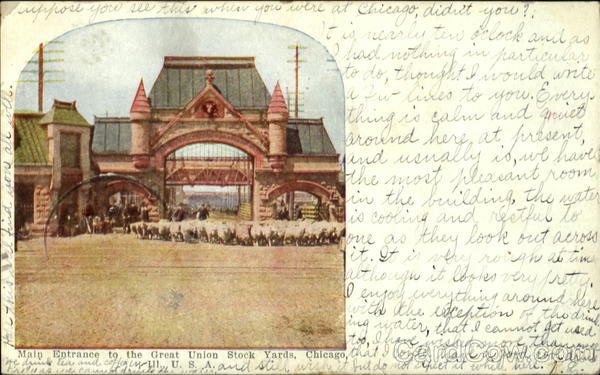 suppose you see this when you were at Chicago, didn't you?
It is nearly ten o'clock and as
I had nothing in particular
to do, thought I would write
a few lines to you. Every-
thing is calm and quiet
around here at present,
and usually is, we have
the most pleasant room
in the building, the water
is cooling and restful to
one as they look out across
it. It is very rough at time
although it looks very pretty.
I enjoy everything around here
with the exception of the drink
ing water, that I cannot get used
to, I have
that I
Main Entrance to the Great Union Stock Yards, Chicago,
Ill., U. S. A.
we drink tea and coffee
and still wish it but do not expect it while here.
CardCow.com